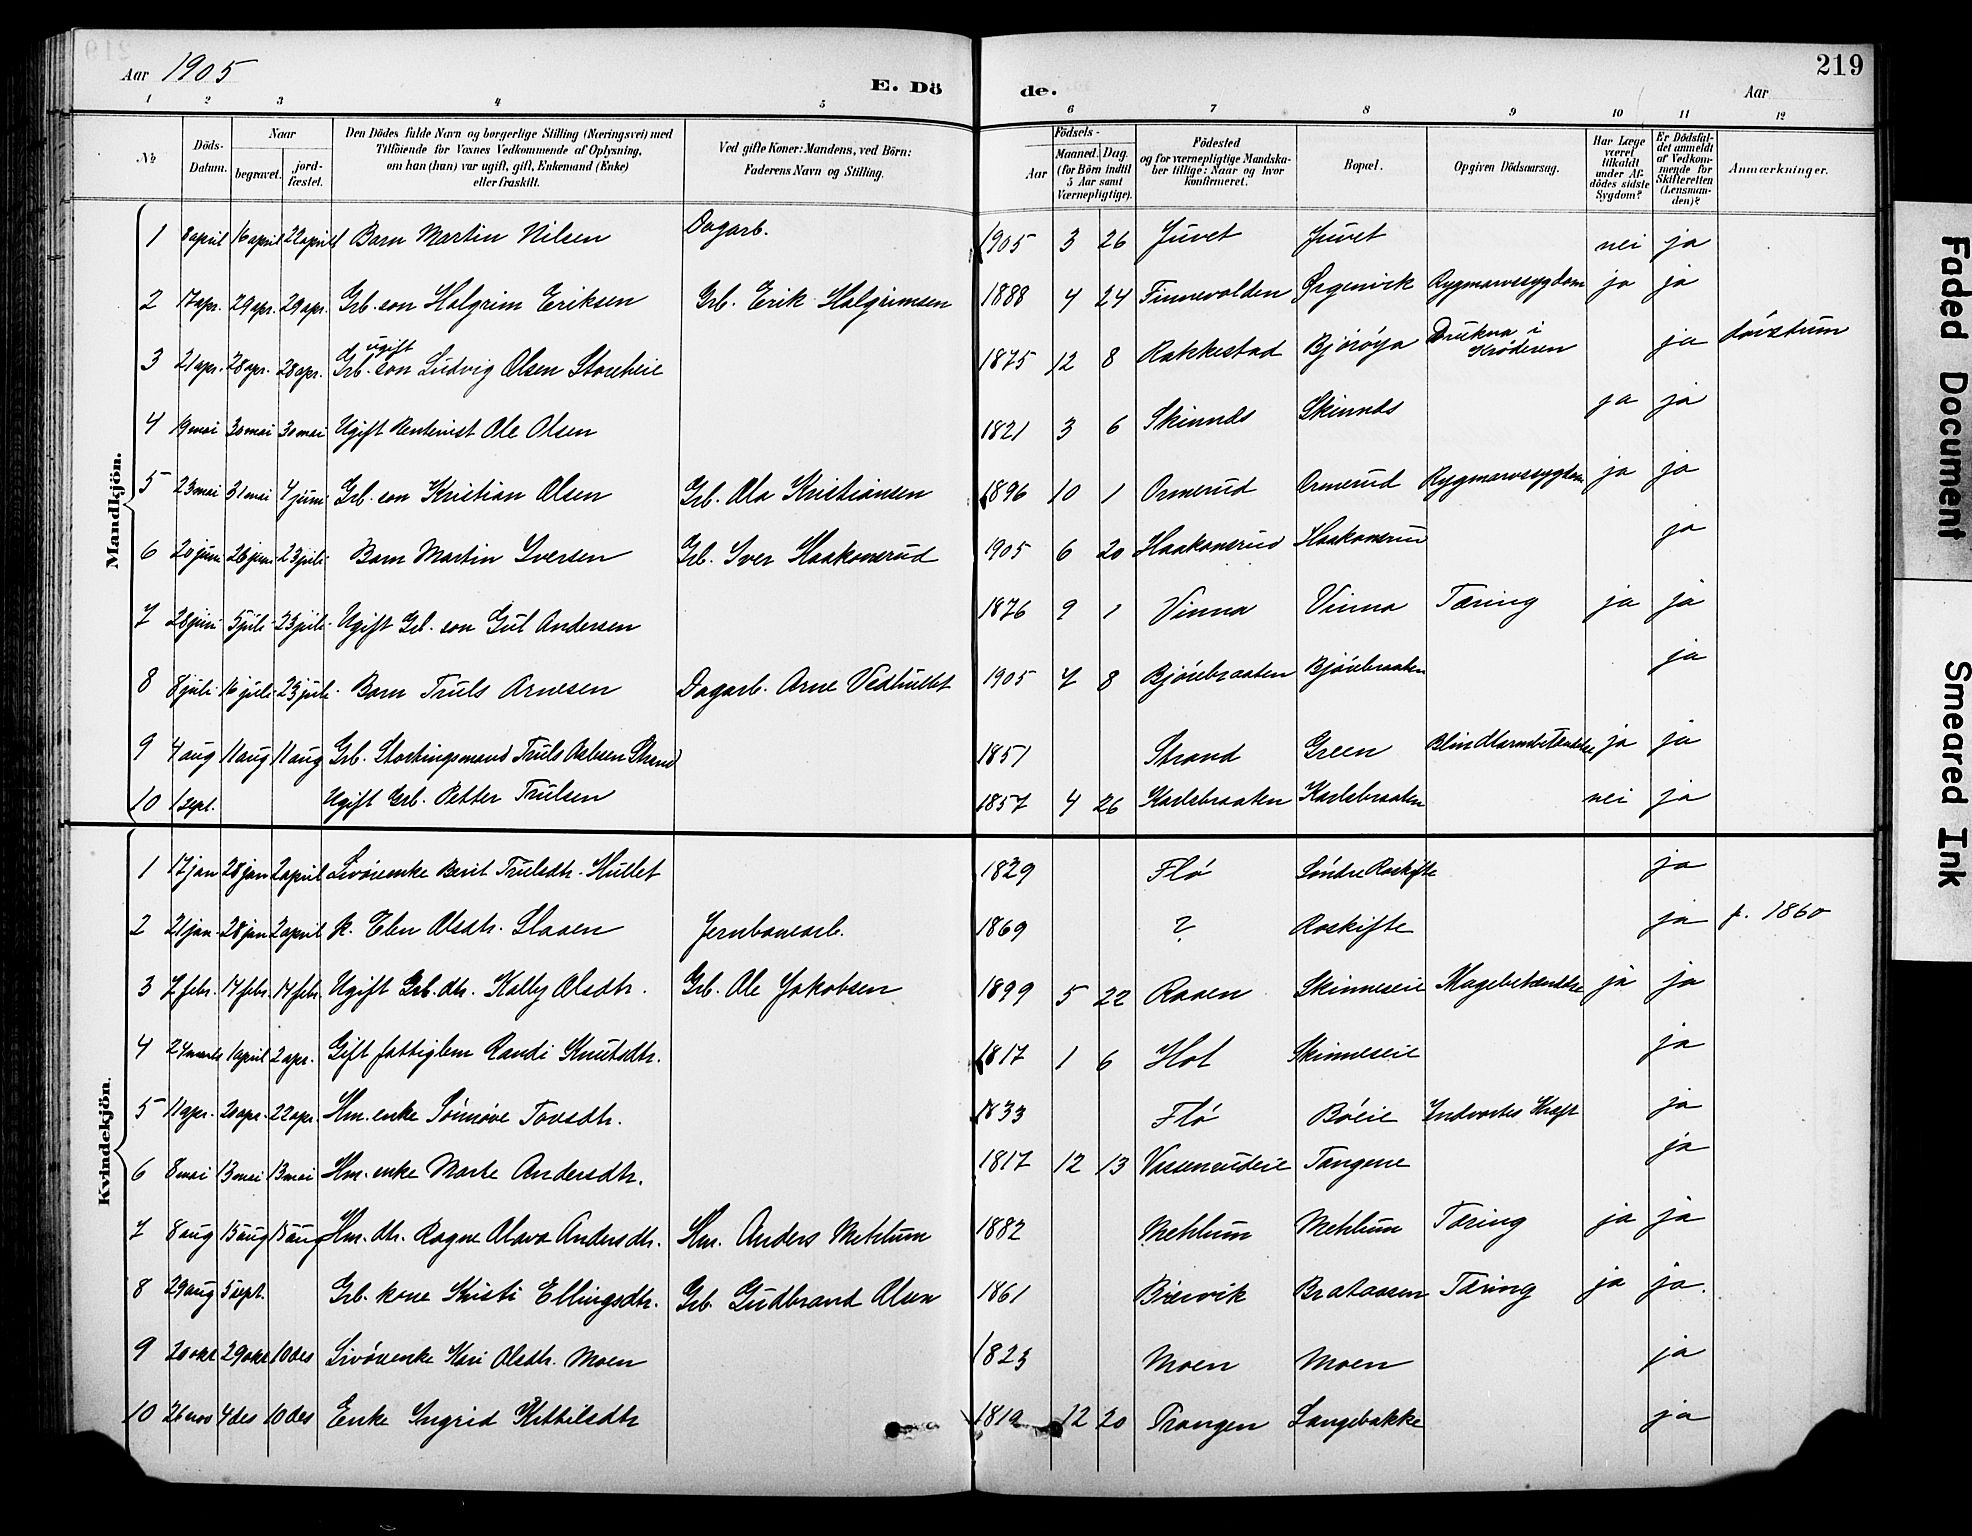 Aar 1905
E. Dö
de.
219
Aar
1 2 3 4 5 6 7 8 9 10 11 12
No
Döds-Datum.
Naar
begravet.
jord-fæstet.
Den Dödes fulde Navn og borgerlige Stilling (Næringsvei) med
Tilföiende for Voxnes Vedkommende af Oplysning,
om han (hun) var ugift, gift, Enkemand (Enke)
eller fraskilt.
Ved gifte Koner: Mandens, ved Börn:
Faderens Navn og Stilling.
Födsels-
Aar
Maaned. Dag.
(for Börn indtil
5 Aar samt
Værnepligtige).
Födested
og for værnepligtige Mandska-
ber tillige: Naar og hvor
konfirmeret.
Bopæl.
Opgiven Dödsaarsag.
Har Læge
været
tilkaldt
under Af-
dödes sidste
Sygdom?
Er Dödsfal-
det anmeldt
af Vedkom-
mende for
Skifteretten
(Lensman-
den)?
Anmærkninger.
Mandkjön.
1 8 april 16 april 22 april Barn Martin Nilsen Dagarb. 1905 3 26 Juvet Juvet nei ja
2 17 apr. 29 apr. 29 apr. Grb. søn Halgrim Eriksen Grb. Erik Halgrimsen 1888 4 24 Finnevolden Ørgenvik Rygmarvssygdom ja ja
3 21 apr. 28 apr. 28 apr. ugift Grb. søn Ludvig Olsen Storeheie 1875 12 8 Rakkestad Bjørøya Drukna i Krøderen ja
4 19 mai 30 mai 30 mai Ugift Rentenist Ole Olsen 1821 3 6 Skinnds Skinnds ja ja
5 23 mai 31 mai 4 juni Grb. søn Kristian Olsen Grb. Ola Kristiansen 1896 10 1 Ormerud Ormerud Rygmarvssygdom ja ja
6 20 juni 26 juni 23 juli Barn Martin Iversen Grb. Iver Haakonsrud 1905 6 20 Haakonsrud Haakonsrud ja
7 28 juni 5 juli 23 juli Ugift Grb. søn Gul Andersen 1876 9 1 Vinna Vinna Tæring ja ja
8 8 juli 16 juli 23 juli Barn Truls Arnesen Dagarb. Arne Vedhullet 1905 7 8 Bjørebraaten Bjørebraaten ja
9 4 aug 11 aug 11 aug Grb. Stortingsmand Truls Strand 1851 Strand Green Blindtarmbetændelse ja ja
10 1 sept. Ugift Grb. Petter Trulsen 1857 4 26 Karlsbraaten Karlsbraaten nei ja
Kvindekjön.
1 17 jan 28 jan 2 april Livøreenke Berit Trulsdtr. Hullet 1829 Flø Søndre Roskifte ja
2 21 jan 28 jan 2 april k. Elen Olsdtr. Slaaen Jernbanearb. 1869 ? Roskifte ja f. 1860
3 7 febr. 14 febr. 14 febr. Ugift Grb. dtr. Kalby Olsdtr. Grb. Ole Jakobsen 1899 5 22 Raaen Skinneseie Magebetændelse ja ja
4 24 marts 1 april 2 apr. Gift fattiglem Randi Knutsdtr. 1817 1 6 Hol Skinneseie ja
5 11 apr. 20 apr. 22 apr. Hm. enke Sønnøve Tovsdtr. 1833 Flø Bøeie Indvortes Kræft ja
6 8 mai 13 mai 13 mai Hm. enke Marte Andersdtr. 1817 12 13 Vassenrudeie Tangene ja
7 8 aug 15 aug 15 aug Hm. dtr. Ragne Olava Andersdtr. Hm. Anders Mehlum 1882 Mehlum Mehlum Tæring ja ja
8 29 aug 5 sept. Grb. kone Kristi Ellingsdtr. Grb. Gudbrand Olsen 1861 Bisevik Brataasen Tæring ja ja.
9 20 okt 29 okt 10 des Livøreenke Kari Olsdtr. Moen 1823 Moen Moen ja
10 26 nov 4 des 10 des Enke Ingrid Kittilsdtr 1812 12 20 Trangen Langebakke ja
Faded Document
Smeared Ink